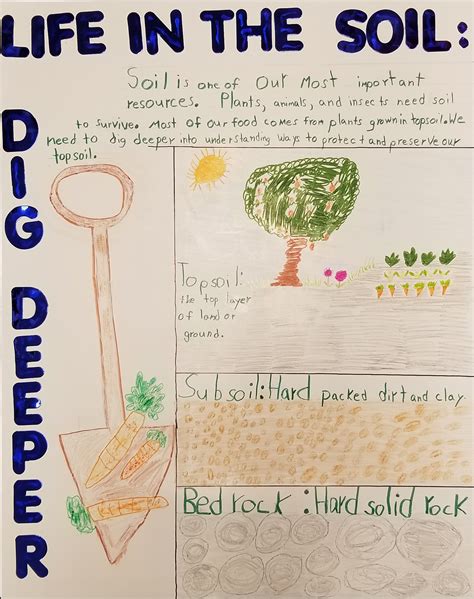 LIFE IN THE SOIL:
DIG DEEPER
Soil is one of Our Most important
resources. Plants, animals, and insects need soil
to survive. Most of our food comes from plants grown in topsoil. We
need to dig deeper into understanding ways to protect and preserve our
topsoil.
Topsoil:
the top layer
of land or
ground.
Subsoil: Hard packed dirt and clay
Bedrock: Hard solid rock